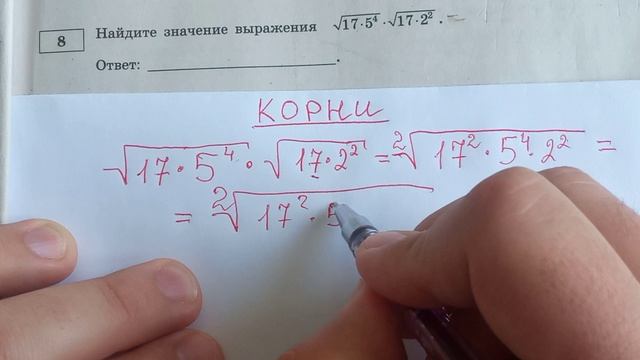 8 Найдите значение выражения √17·5⁴ · √17·2² .
Ответ: ____________________.
КОРНИ
√17·5⁴ · √17·2² = ²√17²·5⁴·2² =
= ²√17²·5